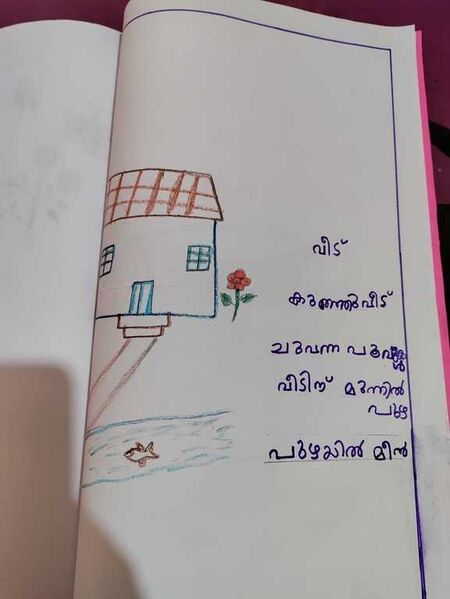 വീട്
കുഞ്ഞുവീട്
ചുവന്ന പൂവുള്ള
വീടിന് മുന്നിൽ
പുഴ
പുഴയിൽ മീൻ